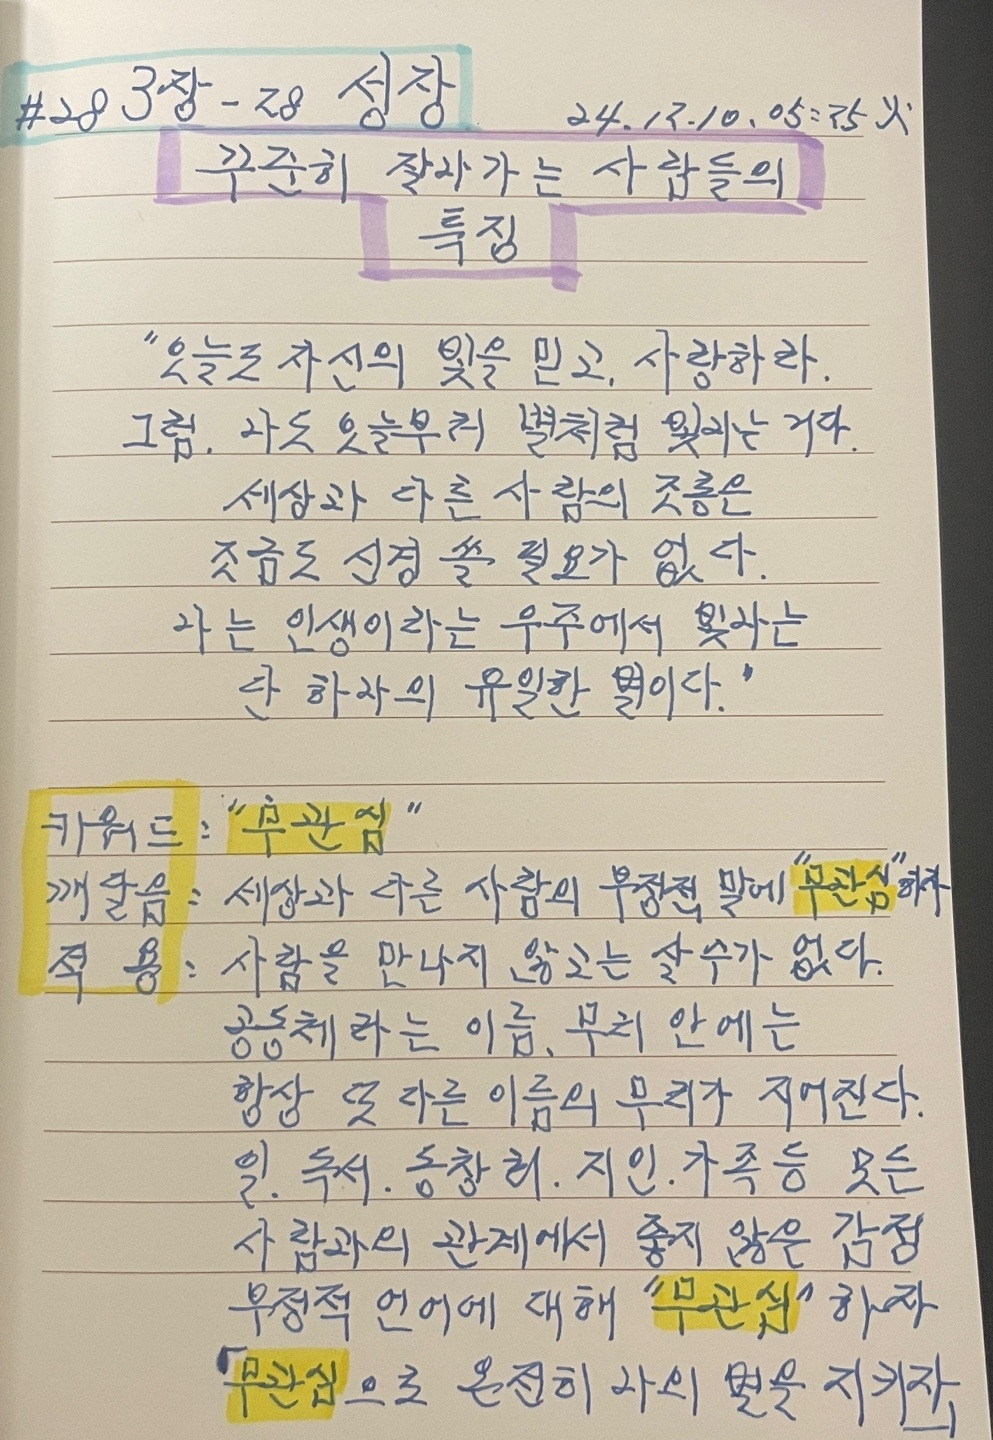 #28 3장-28 성장
24.12.10.05:35 火
꾸준히 잘나가는 사람들의
특징
"오늘도 자신의 빛을 믿고, 사랑하라.
그럼, 나도 오늘부터 별처럼 빛나는 거다.
세상과 다른 사람의 조롱은
조금도 신경 쓸 필요가 없다.
나는 인생이라는 우주에서 빛나는
단 하나의 유일한 별이다."
키워드 : "무관심"
깨달음 : 세상과 다른 사람의 부정적 말에 "무관심"하자
적 용 : 사람을 만나지 않고는 살 수가 없다.
공동체라는 이름, 무리 안에는
항상 또 다른 이름의 무리가 지어진다.
일. 독서. 동창회. 지인. 가족 등 모든
사람과의 관계에서 좋지 않은 감정
부정적 언어에 대해 "무관심" 하자
「무관심으로 온전히 나의 별을 지키자」